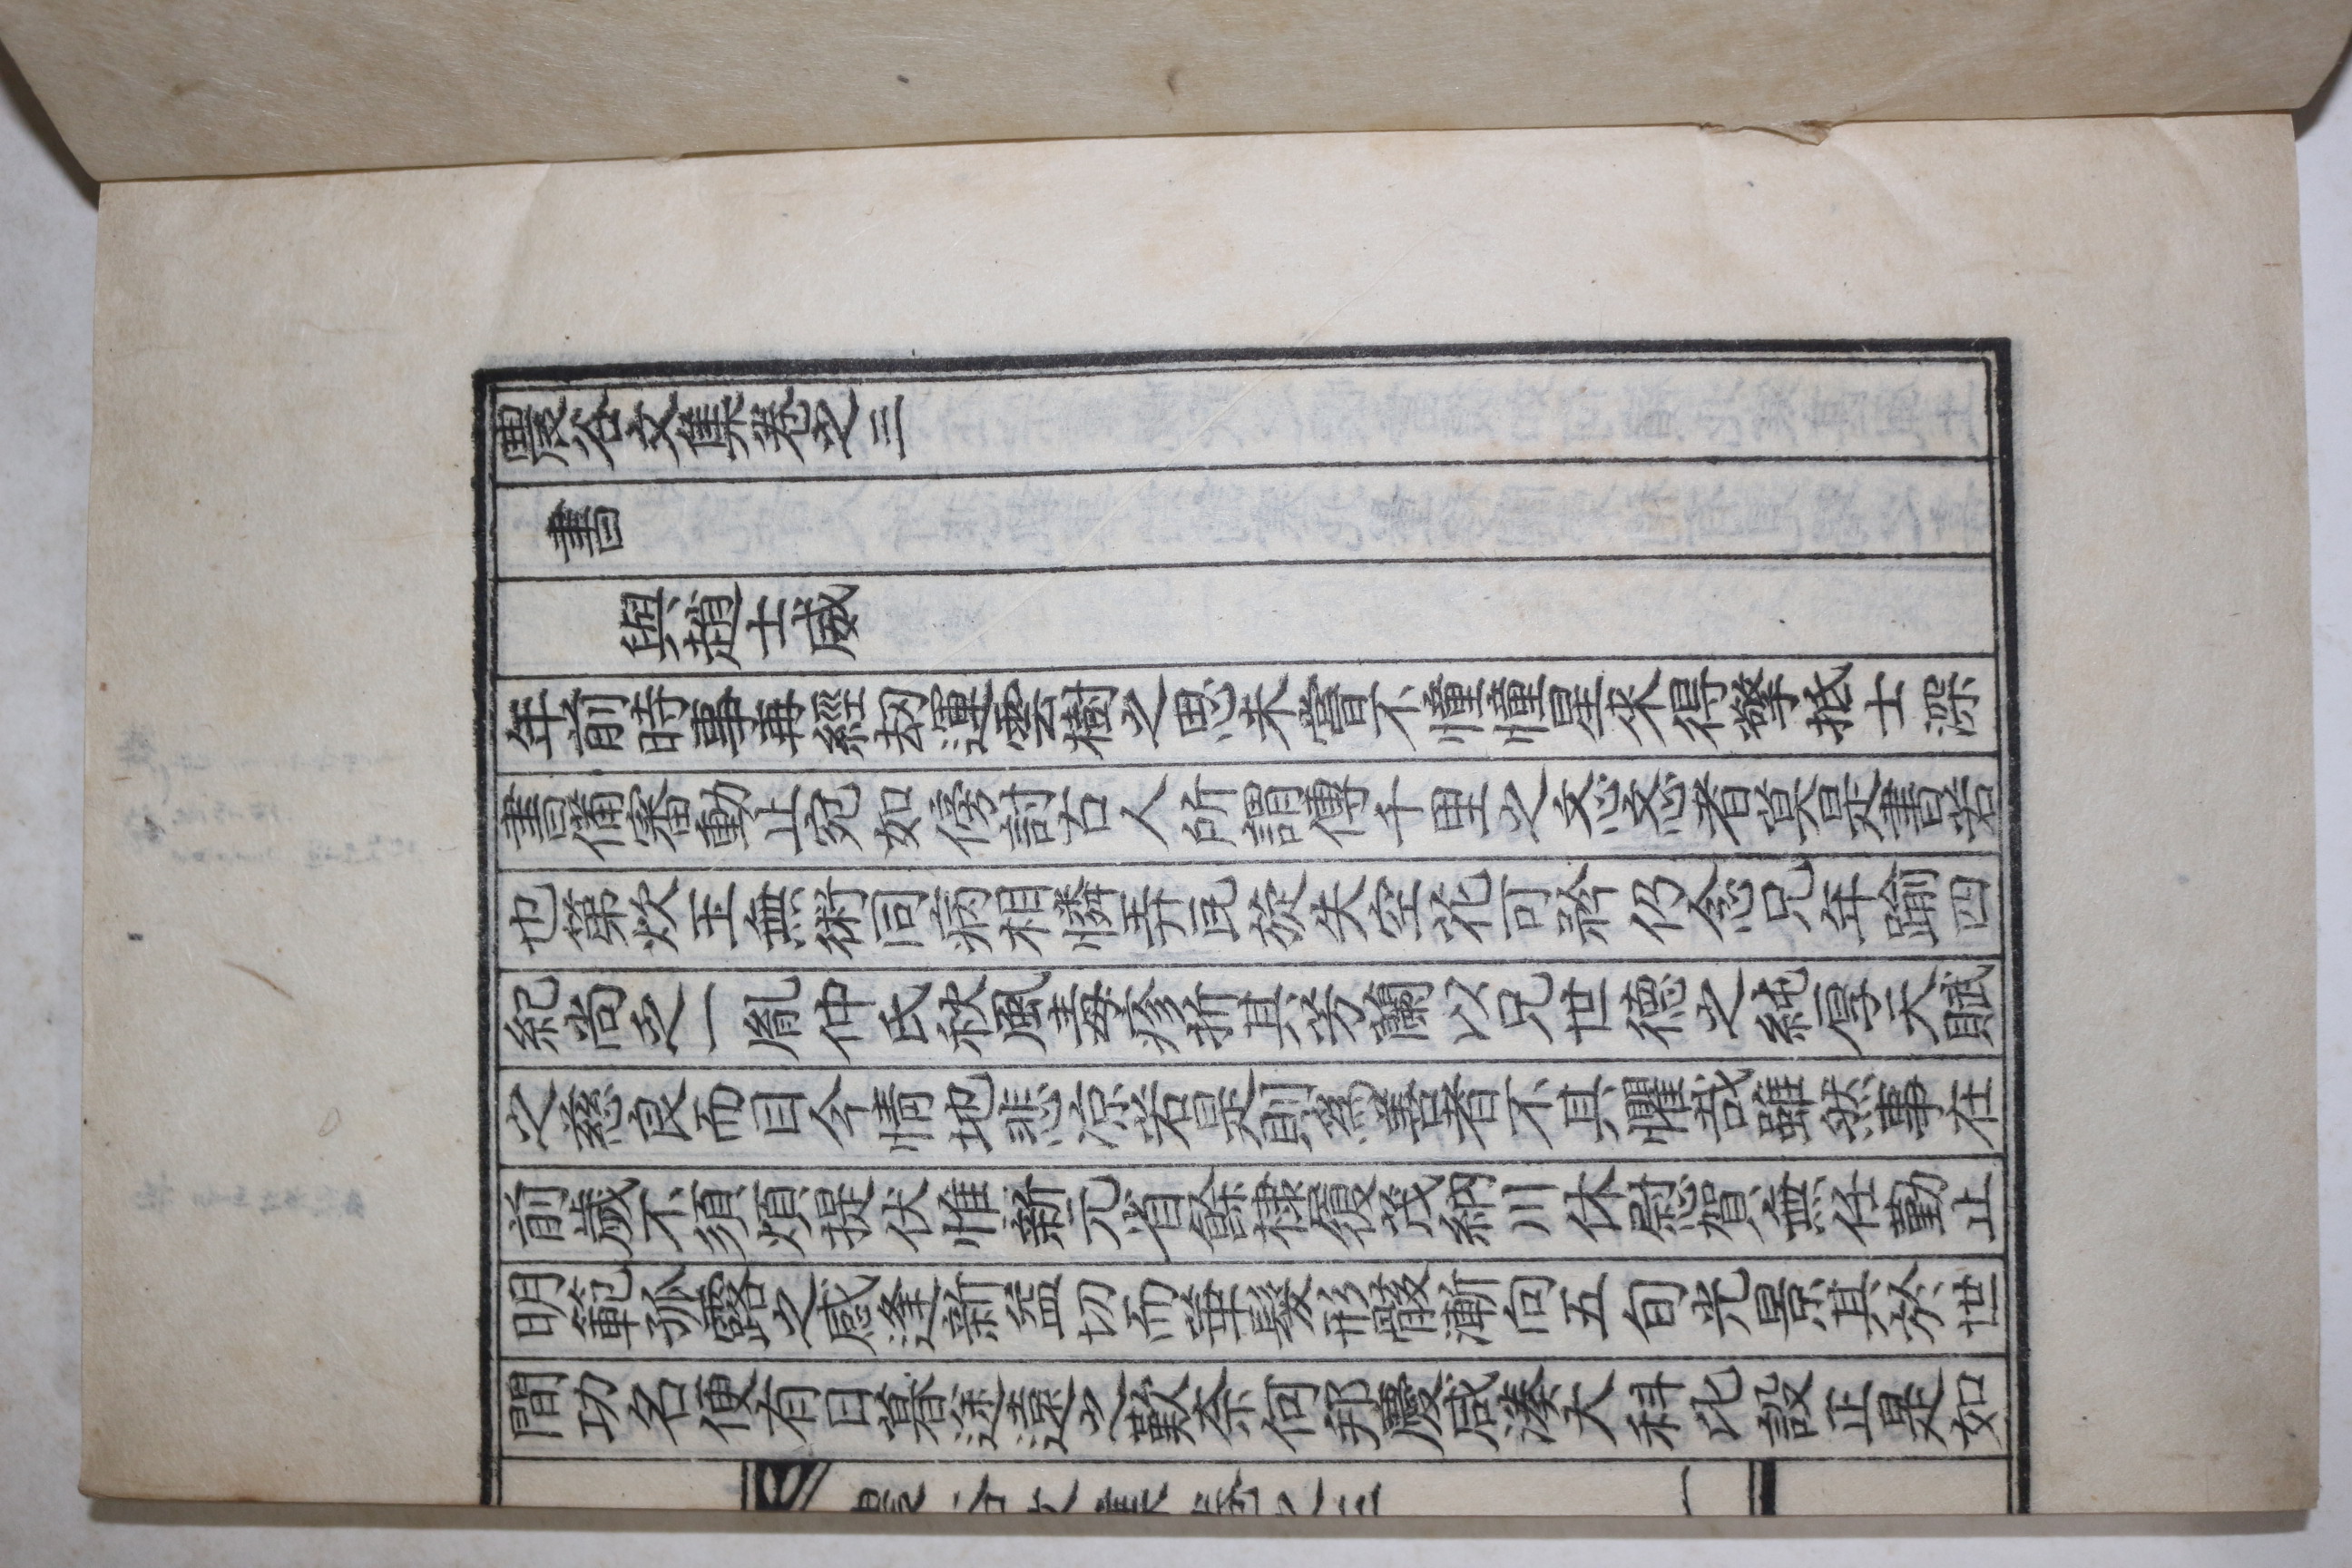 農谷文集卷之三
書
與趙士威
年前時事再經刼運雲樹之思未嘗不憧憧星來得擎抵士深
書備審動止宛如傍討古人所謂傳千里之忞忞者莫是書若
也第炊玉無術同病相憐弄瓦旋失空花可矜仍念兄年踰四
紀尚乏一胤仲氏秋風毒疹折其芳蘭以兄世德之純厚天賦
之慈良而目今情地悲凉若是則爲善者不其懼哉雖然事在
前歲不須煩提伏惟新元省餘棣履茂納川休慰賀無任勤止
明範孤露之感逢新益切而華髮形骸漸向五旬光景其於世
間功名便有日暮途遠之歎奈何邦慶咸湊大科比設正是如
農谷文集卷之三
一